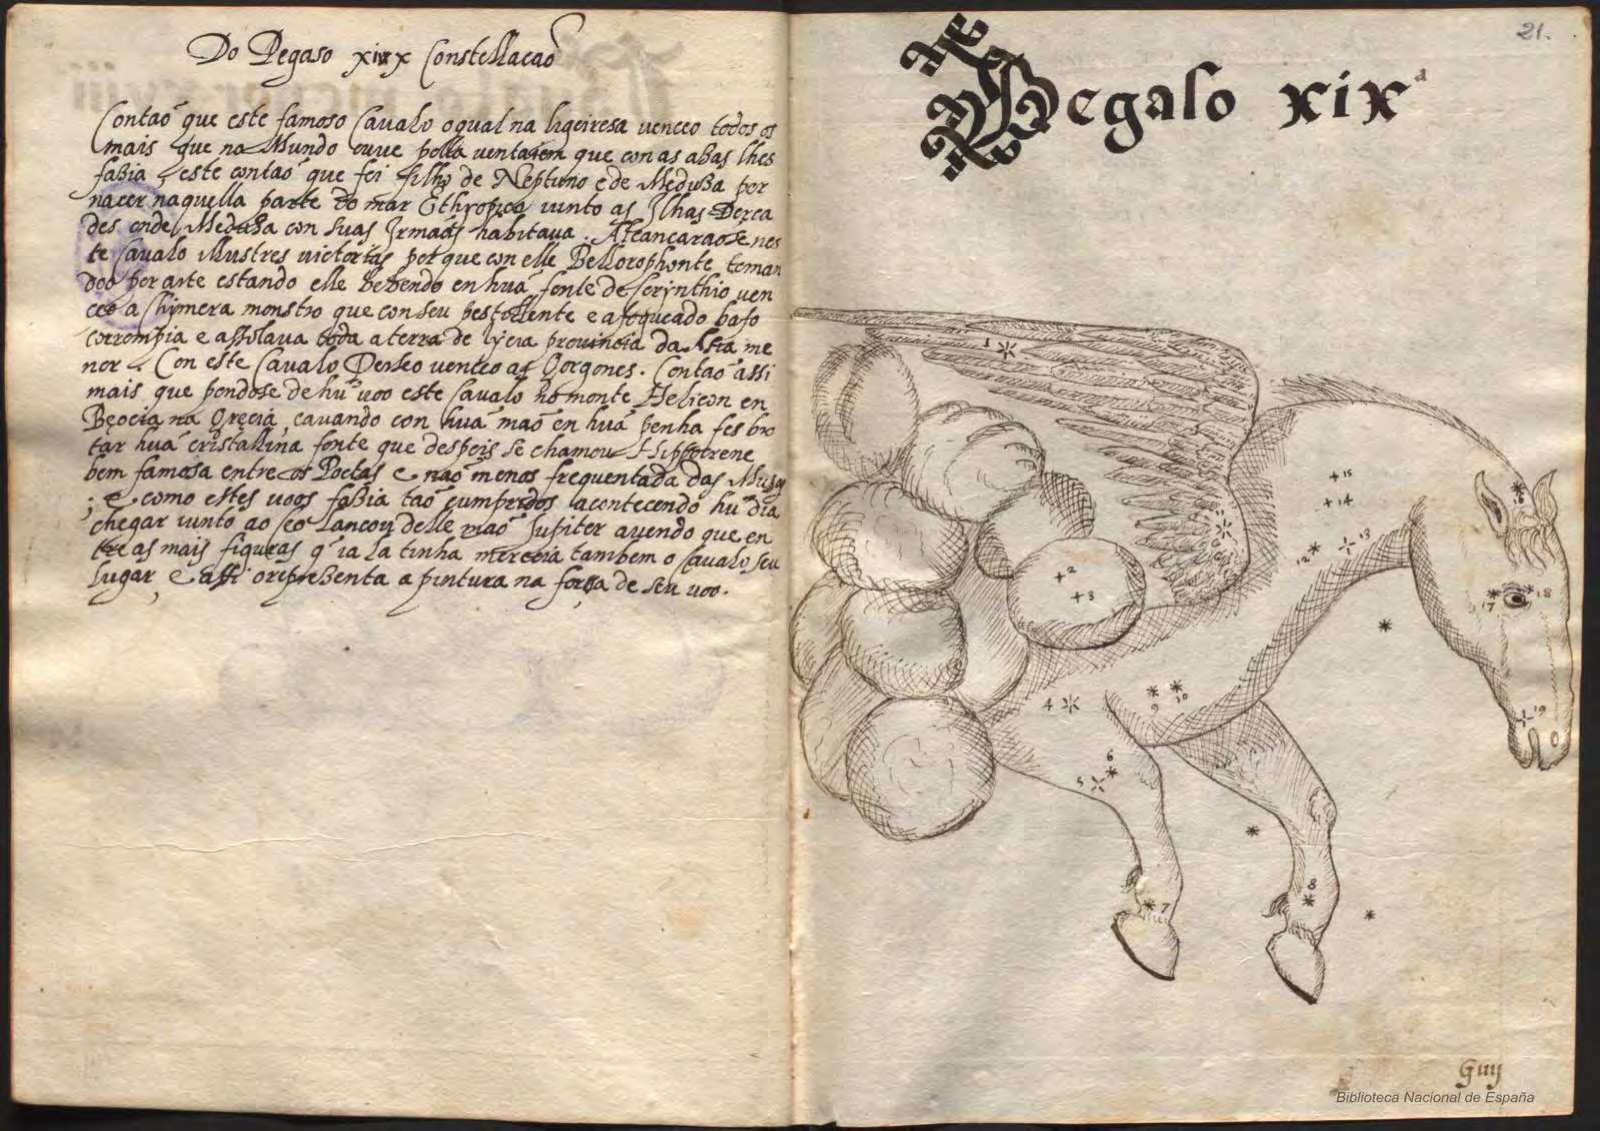 Do Pegaso xixx Constellacaõ
Contaõ que este famoso Cavalo o qual na ligeiresa venceo todos os
mais que no Mundo ouve polla ventaiem que con as aBas lhes
faBia, este contaõ que foi filho de Neptuno e de MeduBa por
nacer naquella parte do mar Ethyopico iunto as Ilhas Derca
des onde MeduBa con suas Irmaãs habitava. Alcançaraõse nes
te Cavalo illustres victorias por que con elle Bellorophonte toman
doo por arte estando elle Bebendo en huã fonte de Corynthio ven
ceo a Chymera monstro que con seu pestollente e afogueado bafo
corrompia e assolava toda a terra de lycia provincia da Asia me
nor. Con este Cavalo Perseo venceo as Gorgones. Contaõ assi
mais que pondose de hũ voo este Cavalo no monte Helicon en
Beocia na Grecia, cavando con huã maõ en huã penha fes bro
tar huã cristallina fonte que despois se chamou Hippocrene
bem famosa entre os Poetas e naõ menos frequentada das Musas
; e como estes voos faBia taõ cumpridos acontecendo hũ dia
chegar iunto ao ceo Lançou delle maõ Iupiter avendo que en
tre as mais figuras q̃ ia la tinha merecia tambem o Cavalo seu
lugar, e assi o repreBenta a pintura na força de seu voo.
21.
Pegaso xix a
1
15
14
16
13
12
2
3
17
18
4
9
10
19
6
5
8
7
Guy
Biblioteca Nacional de España